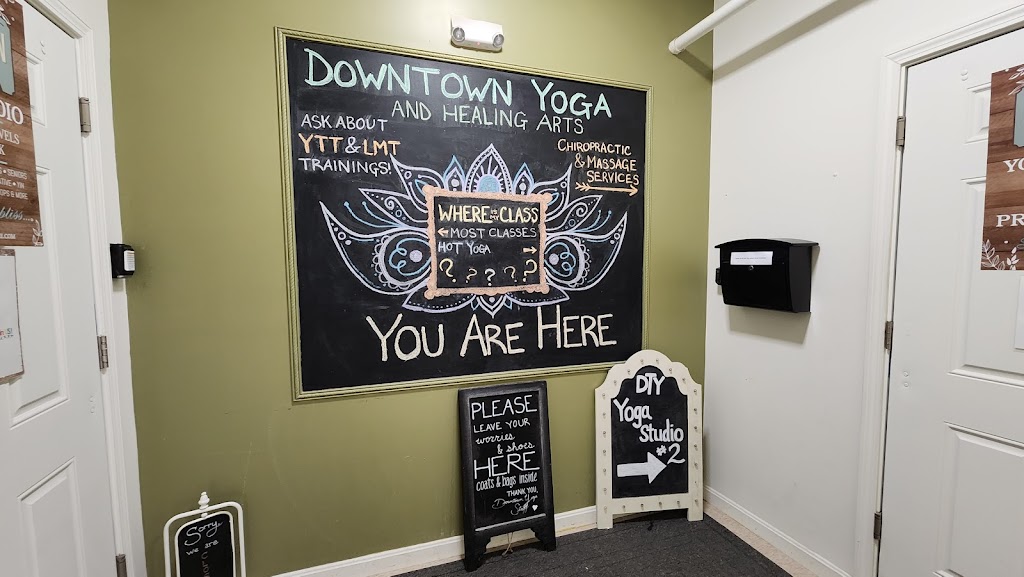 DOWNTOWN YOGA
AND HEALING ARTS
ASK ABOUT
YTT & LMT
TRAININGS!
CHIROPRACTIC
& MASSAGE
SERVICES
WHERE IS MY CLASS
MOST CLASSES
HOT YOGA
? ? ? ? ?
YOU ARE HERE
PLEASE
LEAVE YOUR
worries
& shoes
HERE
coats & bags inside
THANK YOU,
Downtown Yoga
Staff
DTY
Yoga
Studio
#2
Sorry
we are